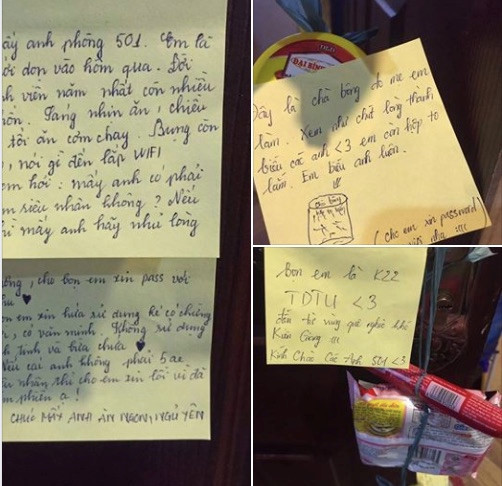 ấy anh phòng 501. Em là
ới dọn vào hôm qua. Đời
h viên năm nhất còn nhiều
hôn. Sáng nhịn ăn, chiều
tối ăn cơm chay. Bụng còn
, nói gì đến lắp WIFI
em hỏi : mấy anh có phải
m siêu nhân không ? Nếu
ì mấy anh hãy nhủ lòng
ông, cho bọn em xin pass với
n em xin hứa sử dụng kế có chừng
, có văn minh. Không sử dụng
h tinh và bừa chứa
Nếu các anh không phải 5 ae
u nhân thì cho em xin lỗi vì đã
m phiền ạ !
CHÚC MẤY ANH ĂN NGON, NGỦ YÊN
ĐẠI BÌNH
Đây là chà bông do mẹ em
làm. Xem như chút lòng thành
biếu các anh <3 em còn hộp to
lắm. Em biếu anh luôn.
Chà Bông
( cho em xin password
nha !!!
bọn em là K22
TDTU <3
đến từ vùng quê nghèo khó
Kiên Giang !!!
Kính Chào Các Anh 501 <3